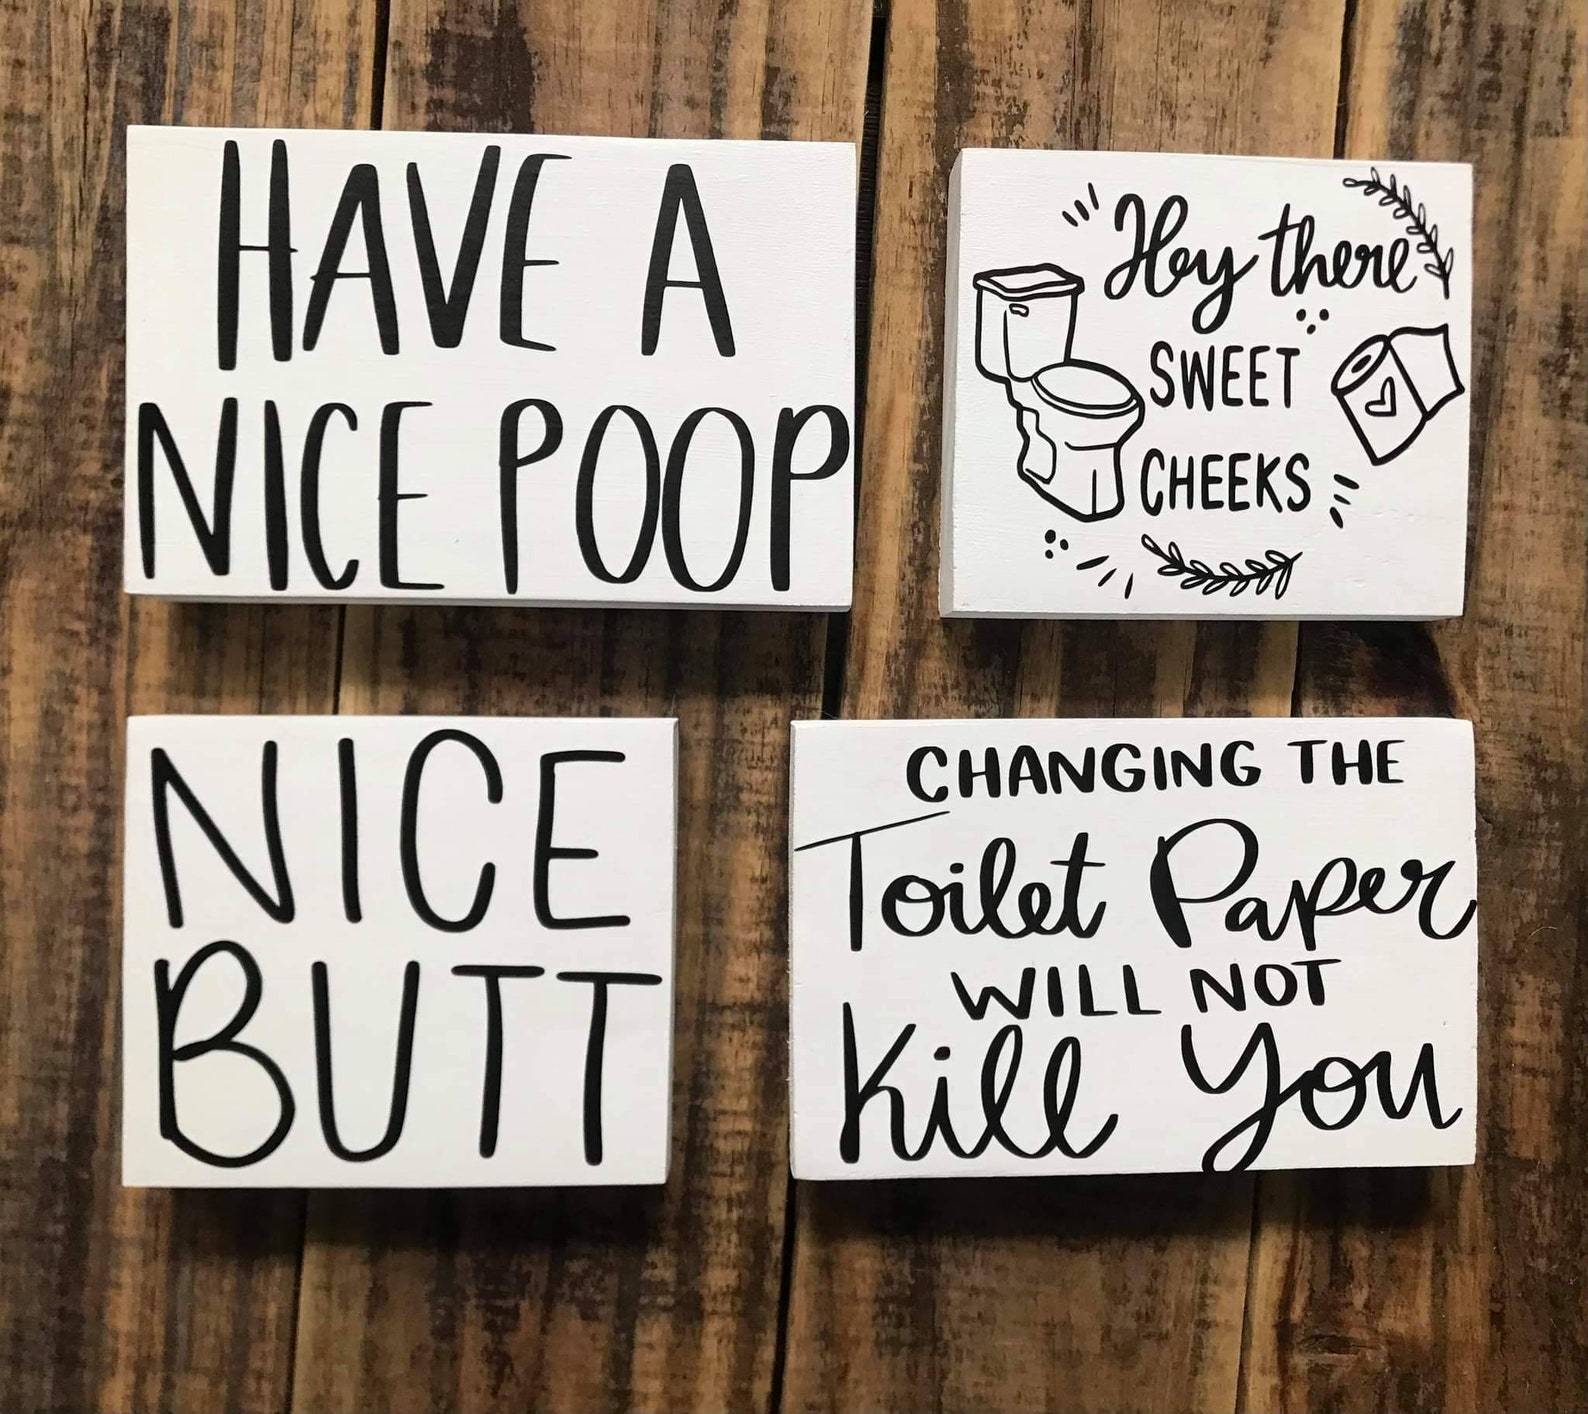 HAVE A
NICE POOP
Hey there
SWEET
CHEEKS
NICE
BUTT
CHANGING THE
Toilet Paper
WILL NOT
Kill You